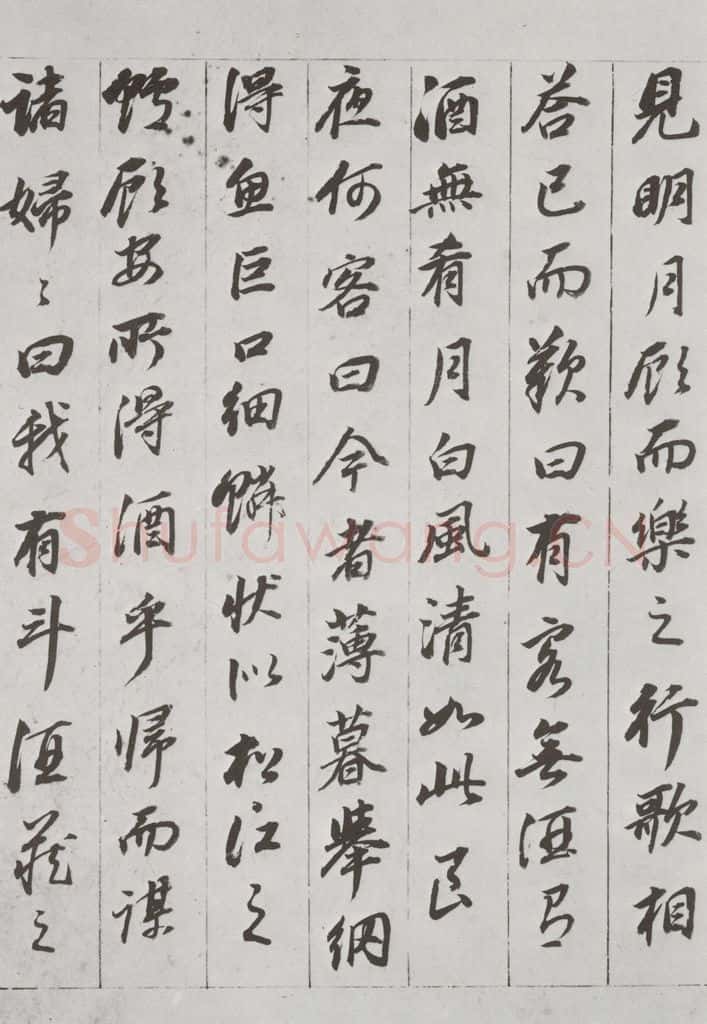 見明月顧而樂之行歌相
答已而歎曰有客無酒有
酒無肴月白風清如此良
夜何客曰今者薄暮舉網
得魚巨口細鱗狀似松江之
鱸顧安所得酒乎歸而謀
諸婦〻曰我有斗酒藏之
Shufawang.CN